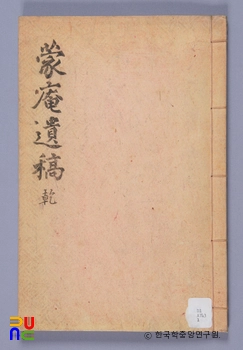 蒙庵遺稿
乾
ⓒ 한국학중앙연구원